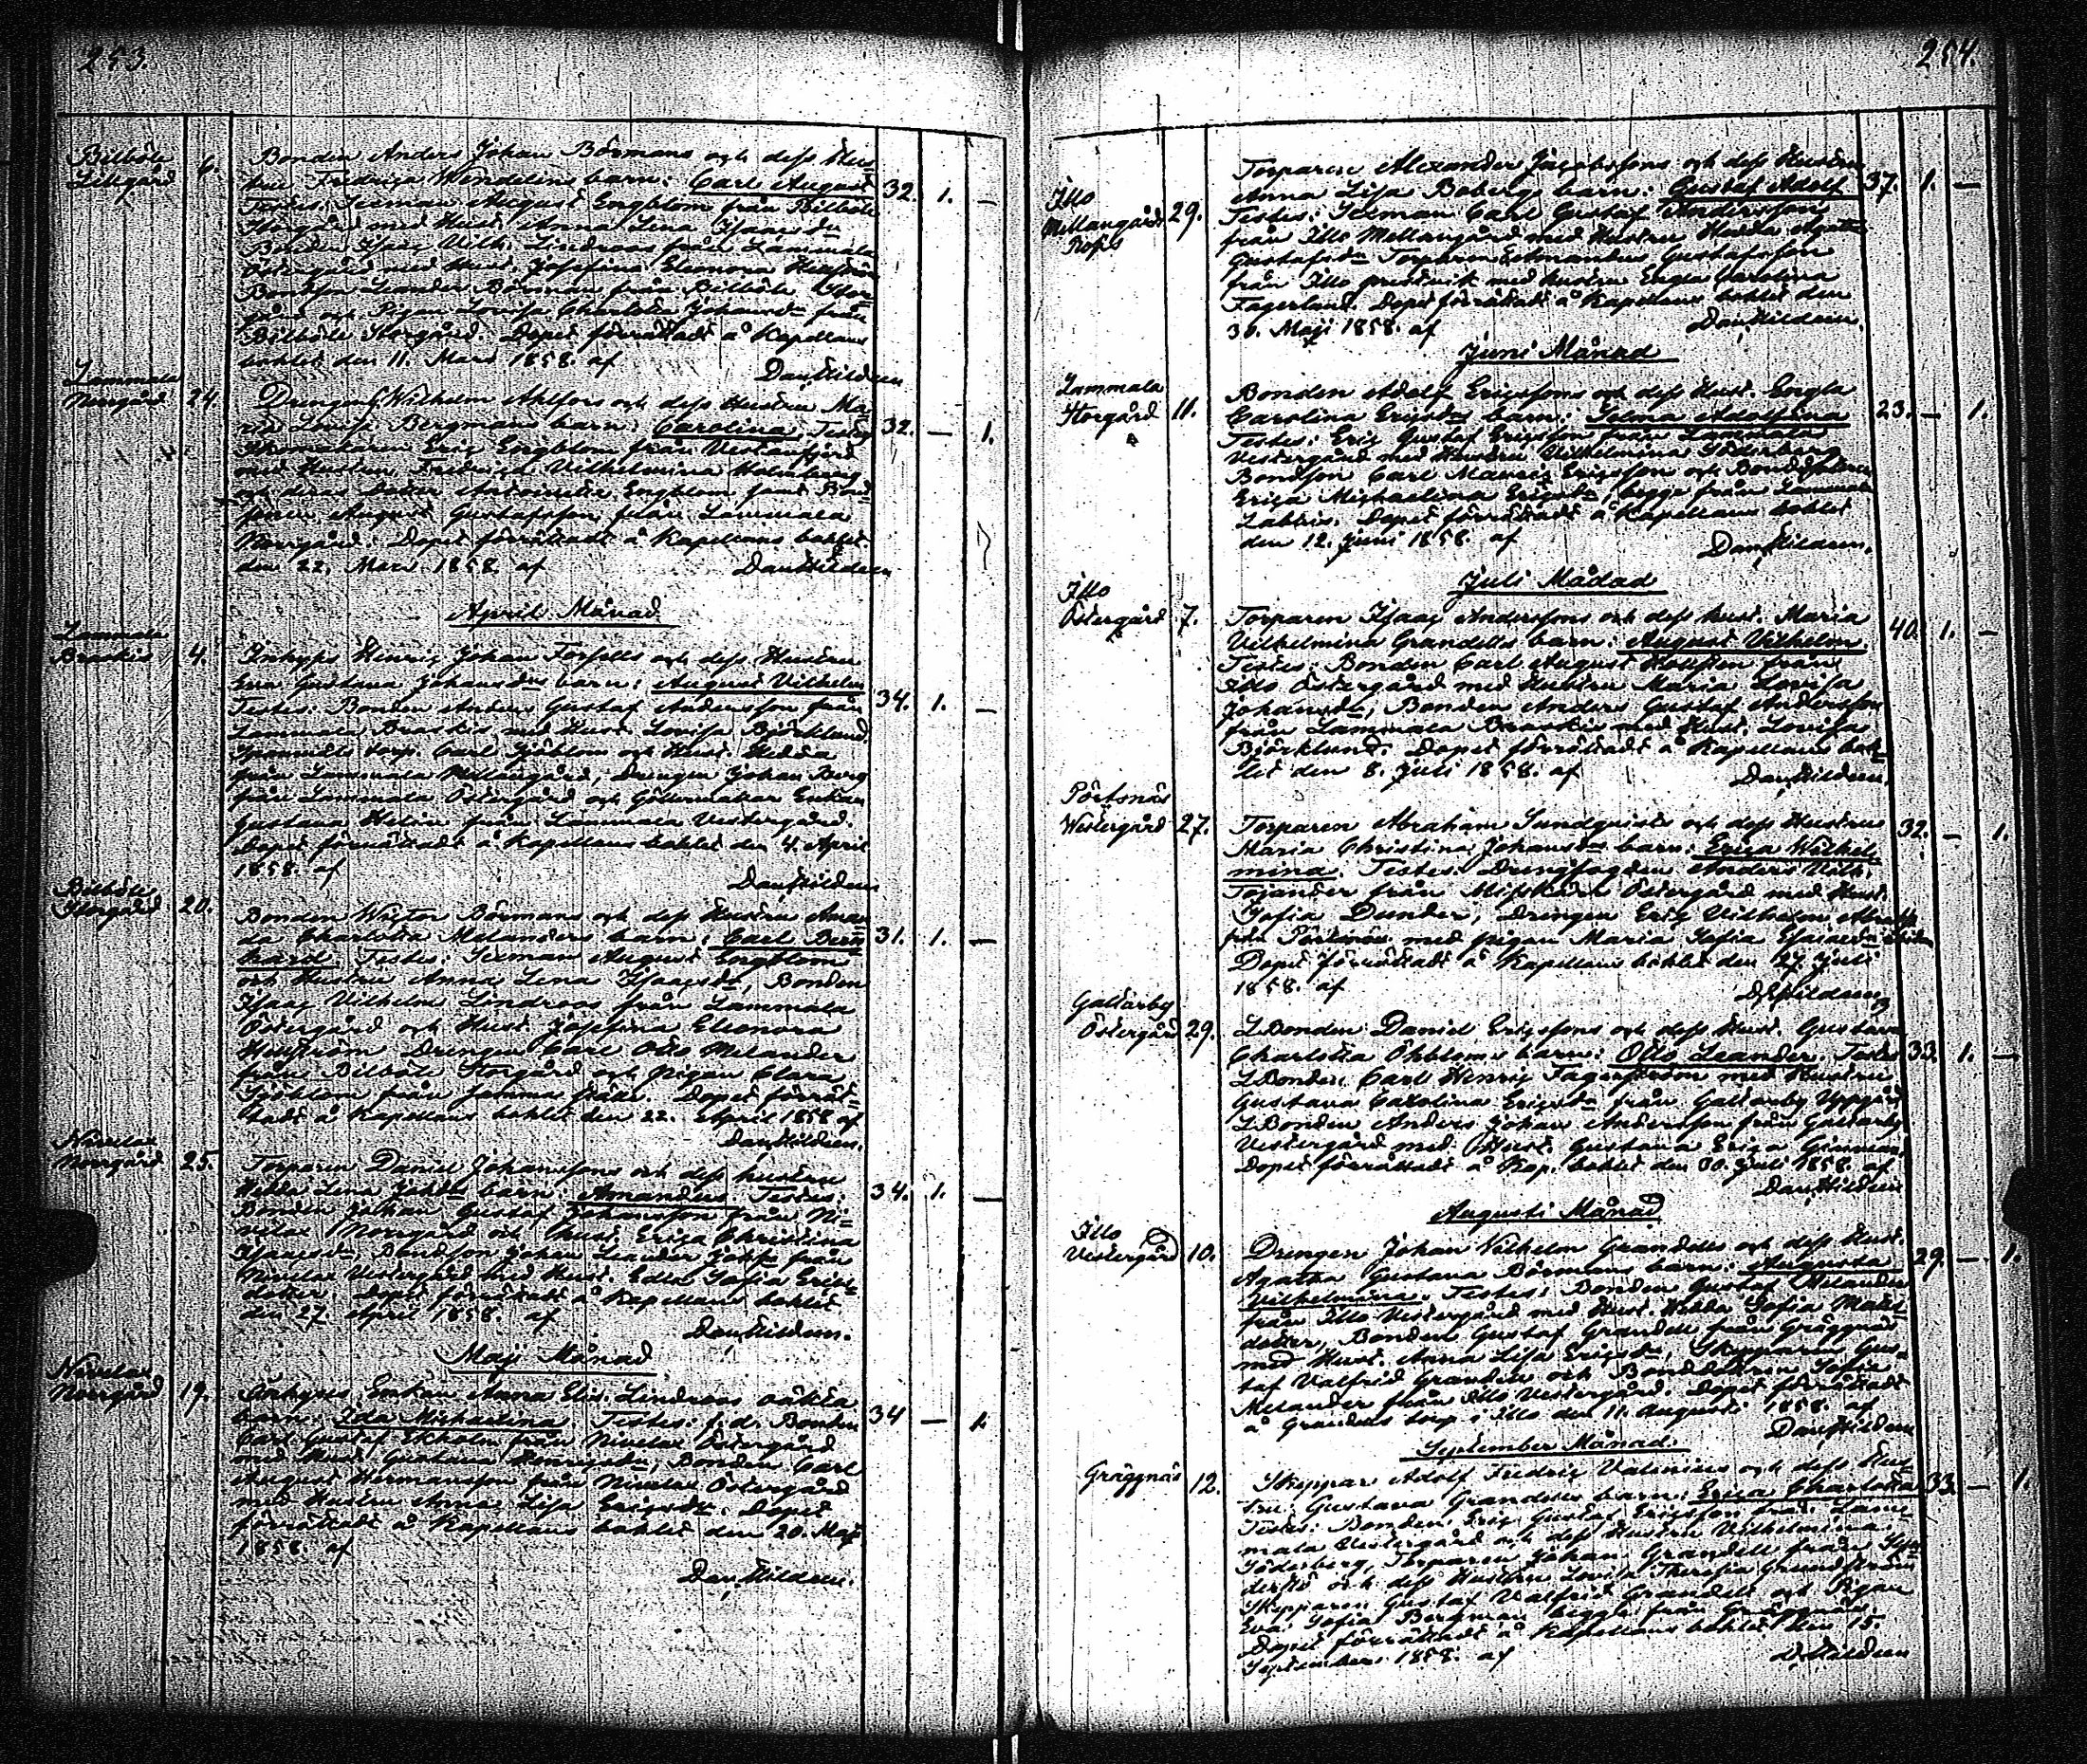 253.
Bilböle
Lillgård
6.
Bonden Anders Johan Börmans och dess Hus-
tru Fredrica Wendelins barn: Carl August 32. 1. —
Testes: Sexman August Engblom från Bilböle
Storgård med Hustr. Anna Lena Isaacsdr
Bonden Isaac Vilh. Lindroos från Lammala
Östergård med Hustr. Josefina Eleonora Hellström
Bondson Leander Börman från Bilböle Stor-
gård och Pigan Lovisa Charlotta Johansdr från
Bilböle Storgård. Dopet förrättadt å Kapellans
bohlet den 11. Mars 1858. af
Dan. Hildeen
Lammala
Norrgård
24
Drengen Wilhelm Ahlfors och dess Hustru Ma-
ria Lovisa Bergman barn: Carolina. Testes 32. — 1.
Eric Engblom från Vestanfjerd
med Hustru Fredrica Vilhelmina Holmberg
och deras dotter Engblom samt Bond-
August Gustafsson från Lammala
Norrgård. Dopet förrättadt å Kapellans bohlet
den 22. Mars 1858 af
Dan. Hildeen
April Månad
Lammala
Braskis
4.
Inhyses Henric Johan Forsells och dess Hustru
Eva Gustava Johansdrs barn: August Vilhelm
Testes: Bonden Anders Gustaf Andersson från 34. 1. —
Lammala Braskis med Hustr. Lovisa Björklund
torp. Carl Sjöblom och Hustr. Hedda
från Lammala Mellangård, Drengen Johan Berg
från Lammala Östergård och Enkan
Gustava Helin från Lammala Vestergård.
Dopet förrättadt å Kapellans bohlet den 4. April
1858. af
Dan. Hildeen
Bilböle
Storgård
20.
Bonden Wictor Börmans och dess Hustru Aman-
da Charlotta Melanders barn: Carl Bern- 31. 1. —
hard. Testes: Sexman August Engblom
och Hustru Anna Lena Isaacsdr, Bonden
Isaac Vilhelm Lindroos från Lammala
Östergård och Hustr. Josefina Eleonora
Hellström Drengen Carl Otto Melander
från Bilböle Storgård och pigan Clara
Sjöblom från samma ställe. Dopet förrät-
tadt å Kapellans bohlet den 22. April 1858 af
Dan. Hildeen.
Nivelax
Norrgård
25.
Torparen Daniel Johanssons och dess hustru
Hedda Lena Jakobsdr barn: Amandus. Testes: 34. 1. —
Bonden Johan Gustaf Johansson från Ni-
velax Norrgård och hust. Erica Christina
Isaacsdr, Bondson Johan Leander från
Nivelax Vestergård med Hust. Edla Sofia Erics-
dotter. Dopet förrättadt å Kapellans bohlet
den 27 April 1858. af
Dan. Hildeen.
Maji Månad
Nivelax
Norrgård
19.
Inhyses Enkan Anna Elis. Lindroos oäkta
barn: Ida Michaelina. Testes: f. d. Bonden 34 — 1.
Carl Gustaf Ekholm från Nivelax Östergård
med Hust. Gustava Henricsdr, Bonden Carl
August Hermansson från Nivelax Östergård
med Hustru Anna Lisa Ericsdr. Dopet
förrättadt å Kapellans bohlet den 20. Maji
1858. af
Dan. Hildeen.
254.
Illo
Mellangård
29.
Torparen Alexander Jacobssons och dess Hustru
Anna Lisa Bobergs barn: Gustaf Adolf 37. 1. —
Testes: Sexman Carl Gustaf Andersson
från Illo Mellangård med Hustru Hulda Agatha
Gustafsdr Torparen Edmandus Gustafsson
från Illo med hustru Engla Carolina
Fagerlund. Dopet förrättadt å Kapellans bohlet den
30. Maji 1858. af
Dan. Hildeen.
Juni Månad
Lammala
Storgård
11.
Bonden Adolf Ericssons och dess Hust. Engla
Carolina Ericsdrs barn: Selma Adolfina 23. — 1.
Testes: Eric Gustaf Ericsson från Lammala
Vestergård med Hustru Vilhelmina Söderberg
Bondson Carl Mauriz Ericsson och Bonddottren
Erica Michaelina Ericsdr, begge från Lammala
Labbis. Dopet förrättadt å Kapellans bohlet
den 12. Juni 1858. af
Dan. Hildeen.
Juli Mådad
Illo
Östergård
7.
Torparen Isaac Anderssons och dess hust. Maria
Vilhelmina Grandells barn: August Vilhelm. 40. 1. —
Testes: Bonden Carl August Hollsten från
Illo Östergård med Hustru Maria Lovisa
Johansdr, Bonden Anders Gustaf Andersson
från Lammala Braskis med Hust. Lovisa
Björklund. Dopet förrättadt å Kapellans boh-
let den 8. Juli 1858. af
Dan. Hildeen.
Pörtsnäs
Westergård
27.
Torparen Abraham Sundqvists och dess Hustrus
Maria Christina Johansdrs barn: Erica Wilhel- 32. — 1.
mina. Testes: Drengfogden Anders Vilh.
Tojander från Misskärr Östergård med Hust.
Sofia Dunder, Drengen Eric Vilhelm
från Pörtsnäs med pigan Maria Sofia
Dopet förrättadt å Kapellans bohlet den 27. Juli
1858. af
D. Hildeen
Galtarby
Östergård
29.
L.Bonden Daniel Ericssons och dess Hust. Gustava
Charlotta Öhbloms barn: Otto Leander. Testes 33. 1. —
L.Bonden Carl Henric Fagerström med Hustru
Gustava Carolina Ericsdr från Galtarby Uppgård
L.Bonden Anders Johan Andersson från Galtarby
Vestergård med Hust. Gustava Erica Ginman.
Dopet förrättadt å Kap. bohlet den 30. Juli 1858. af
Dan. Hildeen
Augusti Månad
Illo
Vestergård
10.
Drengen Johan Vilhelm Grandells och dess Hust.
Agatha Gustava Börmans barn: Augusta 29. — 1.
Vilhelmina. Testes: Bonden Gustaf Melander
från Illo Vestergård med Hust. Hedda Sofia Mats-
dotter, Bonden Gustaf Grandell från Gräggnäs
med Hust. Anna Lisa Ericsdr, Skepparen Gus-
taf Valfrid Grandell och Bonddottren Sofia
Melander från Illo Vestergård. Dopet förrättadt
å Grandells torp i Illo den 11. Augusti 1858. af
Dan. Hildeen
September Månad.
Gräggnäs
12.
Skeppar Adolf Fredric Valenius och dess Hus-
tru Gustava Grandells barn: Erica Charlotta 33. — 1.
Testes: Bonden Eric Gustaf Ericsson från Lam-
mala Vestergård och dess Hustru Vilhelmina
Söderberg, Torparen Johan Grandell från Sön-
derstö och dess Hustru Lovisa Theresia Grundström
Skepparen Gustaf Valfrid Grandell och Pigan
Eva Sofia Bergman begge från Gräggnäs.
Dopet förrättadt å Kapellans bohlet den 15.
September 1858. af
D. Hildeen